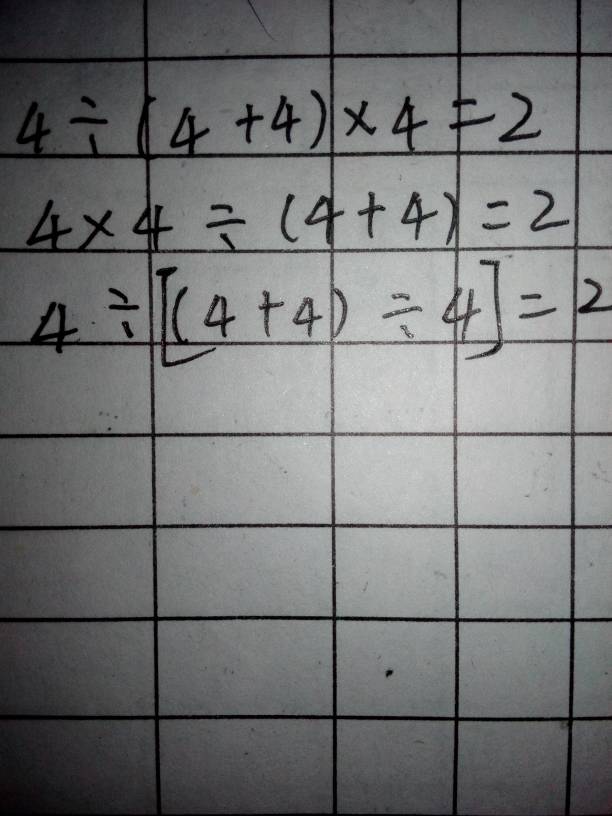 4÷(4+4)×4=2
4×4÷(4+4)=2
4÷[(4+4)÷4]=2